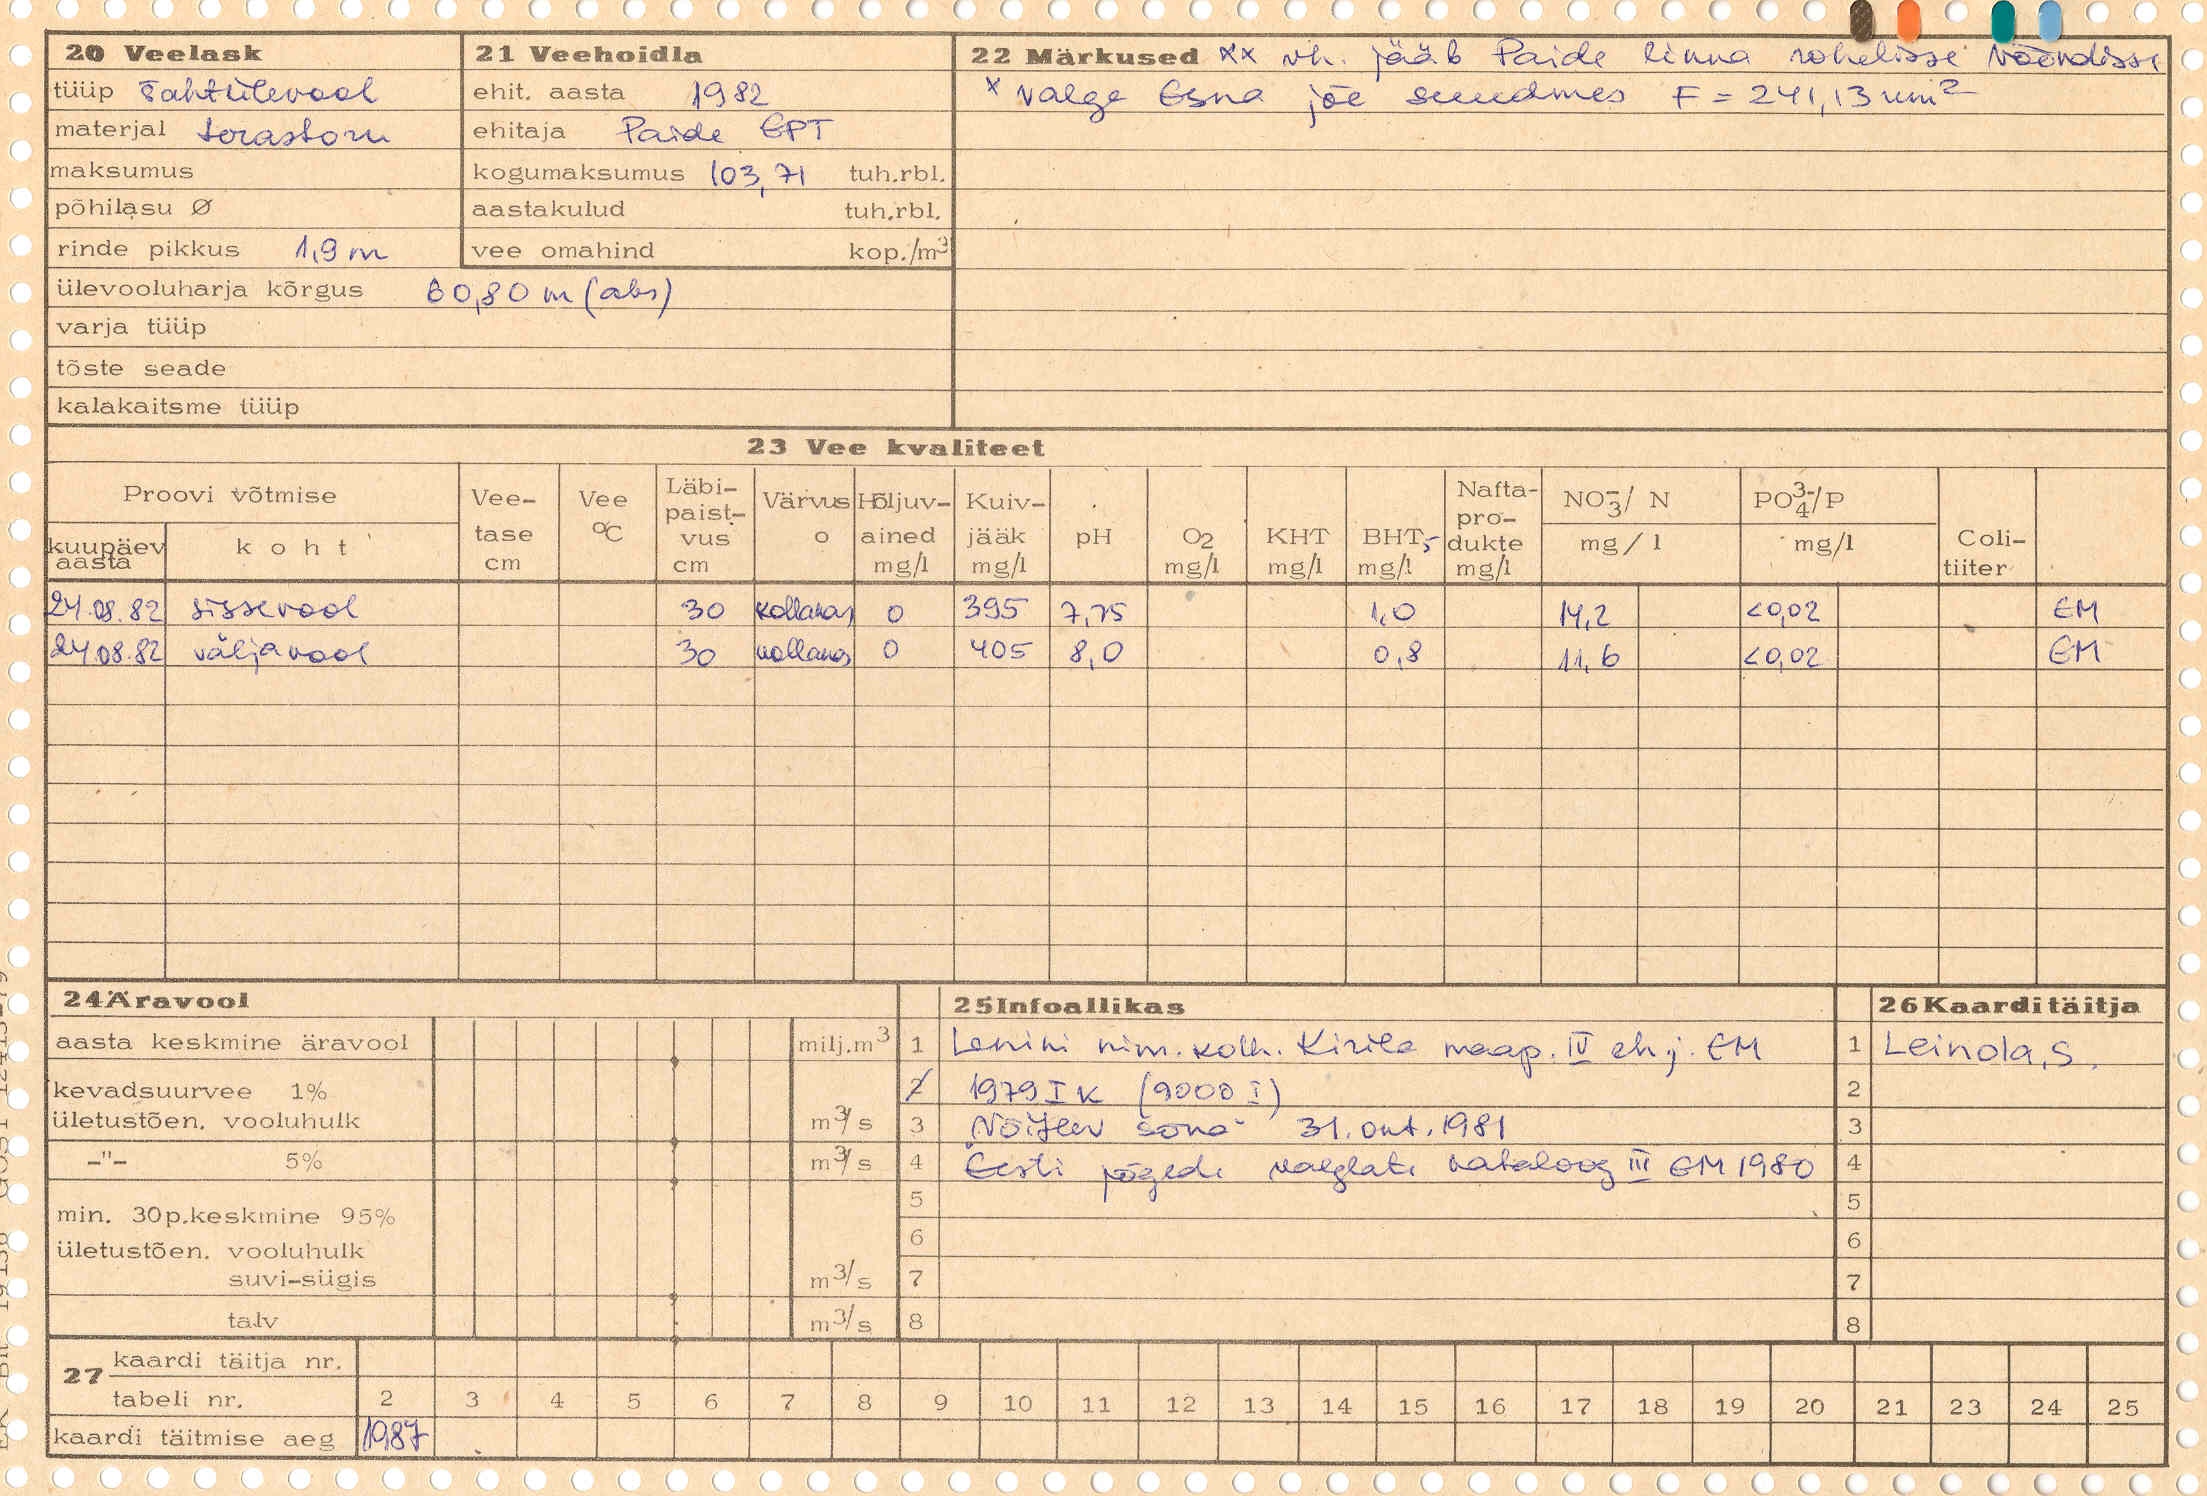 20 Veelask
tüüp šahtülevool
materjal terastoru
maksumus
põhilasu Ø
rinde pikkus 1,9 m
ülevooluharja kõrgus 60,80 m (abs)
varja tüüp
tõste seade
kalakaitsme tüüp
21 Veehoidla
ehit. aasta 1982
ehitaja Paide EPT
kogumaksumus 103,71 tuh.rbl.
aastakulud tuh.rbl.
vee omahind kop./m³
22 Märkused xx vh. jääb Paide linna rohelisse vööndisse
x Valge Esna jõe suudmes F = 241,13 km²
23 Vee kvaliteet
Proovi võtmise
kuupäev aasta
koht
Vee-tase cm
Vee °C
Läbi-paist-vus cm
Värvus o
Hõljuv-ained mg/l
Kuiv-jääk mg/l
pH
O2 mg/l
KHT mg/l
BHT5 mg/l
Nafta-pro-dukte mg/l
NO3⁻/ N mg/l
PO4³⁻/P mg/l
Coli-tiiter
24.08.82 sissevool 30 kollakas 0 395 7,75 1,0 14,2 <0,02 EM
24.08.82 väljavool 30 kollakas 0 405 8,0 0,8 11,6 <0,02 EM
24 Äravool
aasta keskmine äravool milj.m³
kevadsuurvee 1%
ületustõen. vooluhulk m³/s
-"- 5% m³/s
min. 30p.keskmine 95%
ületustõen. vooluhulk
suvi-sügis m³/s
talv m³/s
25 Infoallikas
1 Lenini nim. kolh. Kirila maap. IV eh.j. EM
2 1979 I K (9000 I)
3 "Võitlev Sõna" 31. okt. 1981
4 Eesti jõgede valglate kataloog III EM 1980
5
6
7
8
26 Kaardi täitja
1 Leinola, S.
2
3
4
5
6
7
8
27 kaardi täitja nr.
tabeli nr. 2 3 4 5 6 7 8 9 10 11 12 13 14 15 16 17 18 19 20 21 23 24 25
kaardi täitmise aeg 1987